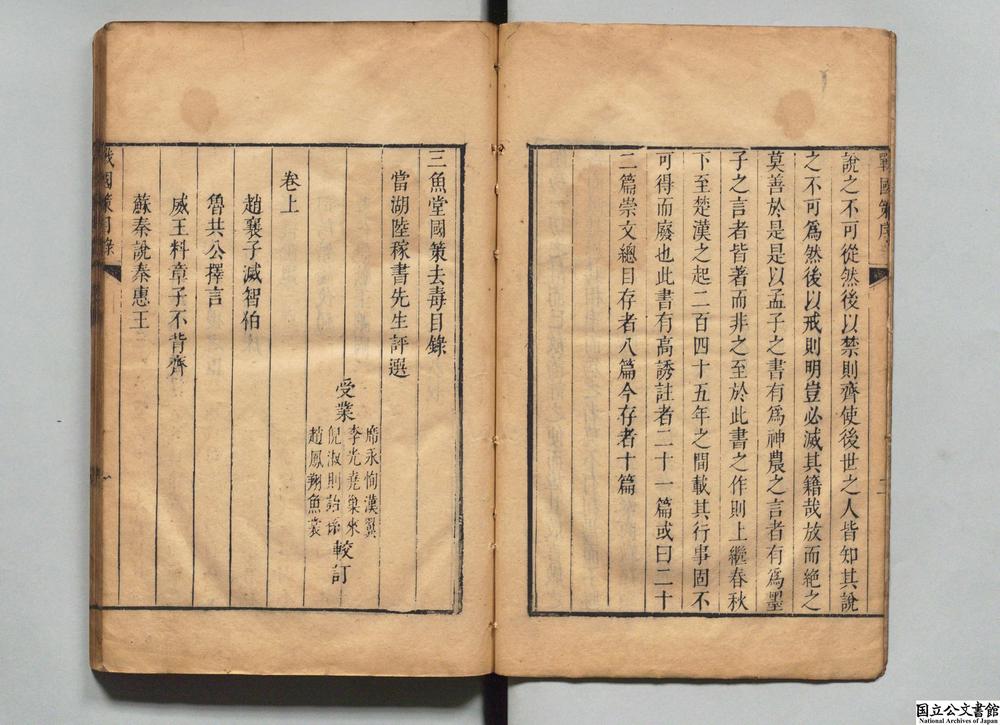 戰國策序
二
說之不可從然後以禁則齊使後世之人皆知其說
之不可爲然後以戒則明豈必滅其籍哉放而絕之
莫善於是是以孟子之書有爲神農之言者有爲墨
子之言者皆著而非之至於此書之作則上繼春秋
下至楚漢之起二百四十五年之間載其行事固不
可得而廢也此書有高誘註者二十一篇或曰二十
二篇崇文總目存者八篇今存者十篇
三魚堂國策去毒目錄
當湖陸稼書先生評選
受業
席永恂漢翼
李光堯巢來
倪淑則詒孫
趙鳳翔魚裳
較訂
卷上
趙襄子滅智伯
魯共公擇言
威王料章子不背齊
蘇秦說秦惠王
戰國策目錄
一
国立公文書館
National Archives of Japan